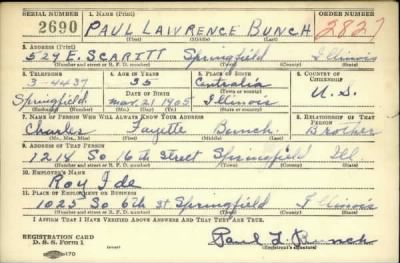 SERIAL NUMBER 1. NAME (Print) ORDER NUMBER
2690 PAUL LAWRENCE BUNCH 2827
(First) (Middle) (Last)
2. ADDRESS (Print)
524 E. SCARITT Springfield Illinois
(Number and street or R. F. D. number) (Town) (County) (State)
3. TELEPHONE 4. AGE IN YEARS 5. PLACE OF BIRTH 6. COUNTRY OF CITIZENSHIP
3-4437 35 Centralia
Springfield DATE OF BIRTH (Town or county) U.S.
Mar. 21 1905 Illinois
(Exchange) (Number) (Mo.) (Day) (Yr.) (State or country)
7. NAME OF PERSON WHO WILL ALWAYS KNOW YOUR ADDRESS 8. RELATIONSHIP OF THAT PERSON
Charles Fayette Bunch Brother
(Mr., Mrs., Miss) (First) (Middle) (Last)
9. ADDRESS OF THAT PERSON
1214 So 16th Street Springfield Ill
(Number and street or R. F. D. number) (Town) (County) (State)
10. EMPLOYER'S NAME
Roy Ide
11. PLACE OF EMPLOYMENT OR BUSINESS
1025 So 6th St. Springfield Illinois
(Number and street or R. F. D. number) (Town) (County) (State)
I AFFIRM THAT I HAVE VERIFIED ABOVE ANSWERS AND THAT THEY ARE TRUE.
REGISTRATION CARD
D. S. S. Form 1 Paul L. Bunch
(Registrant's signature)